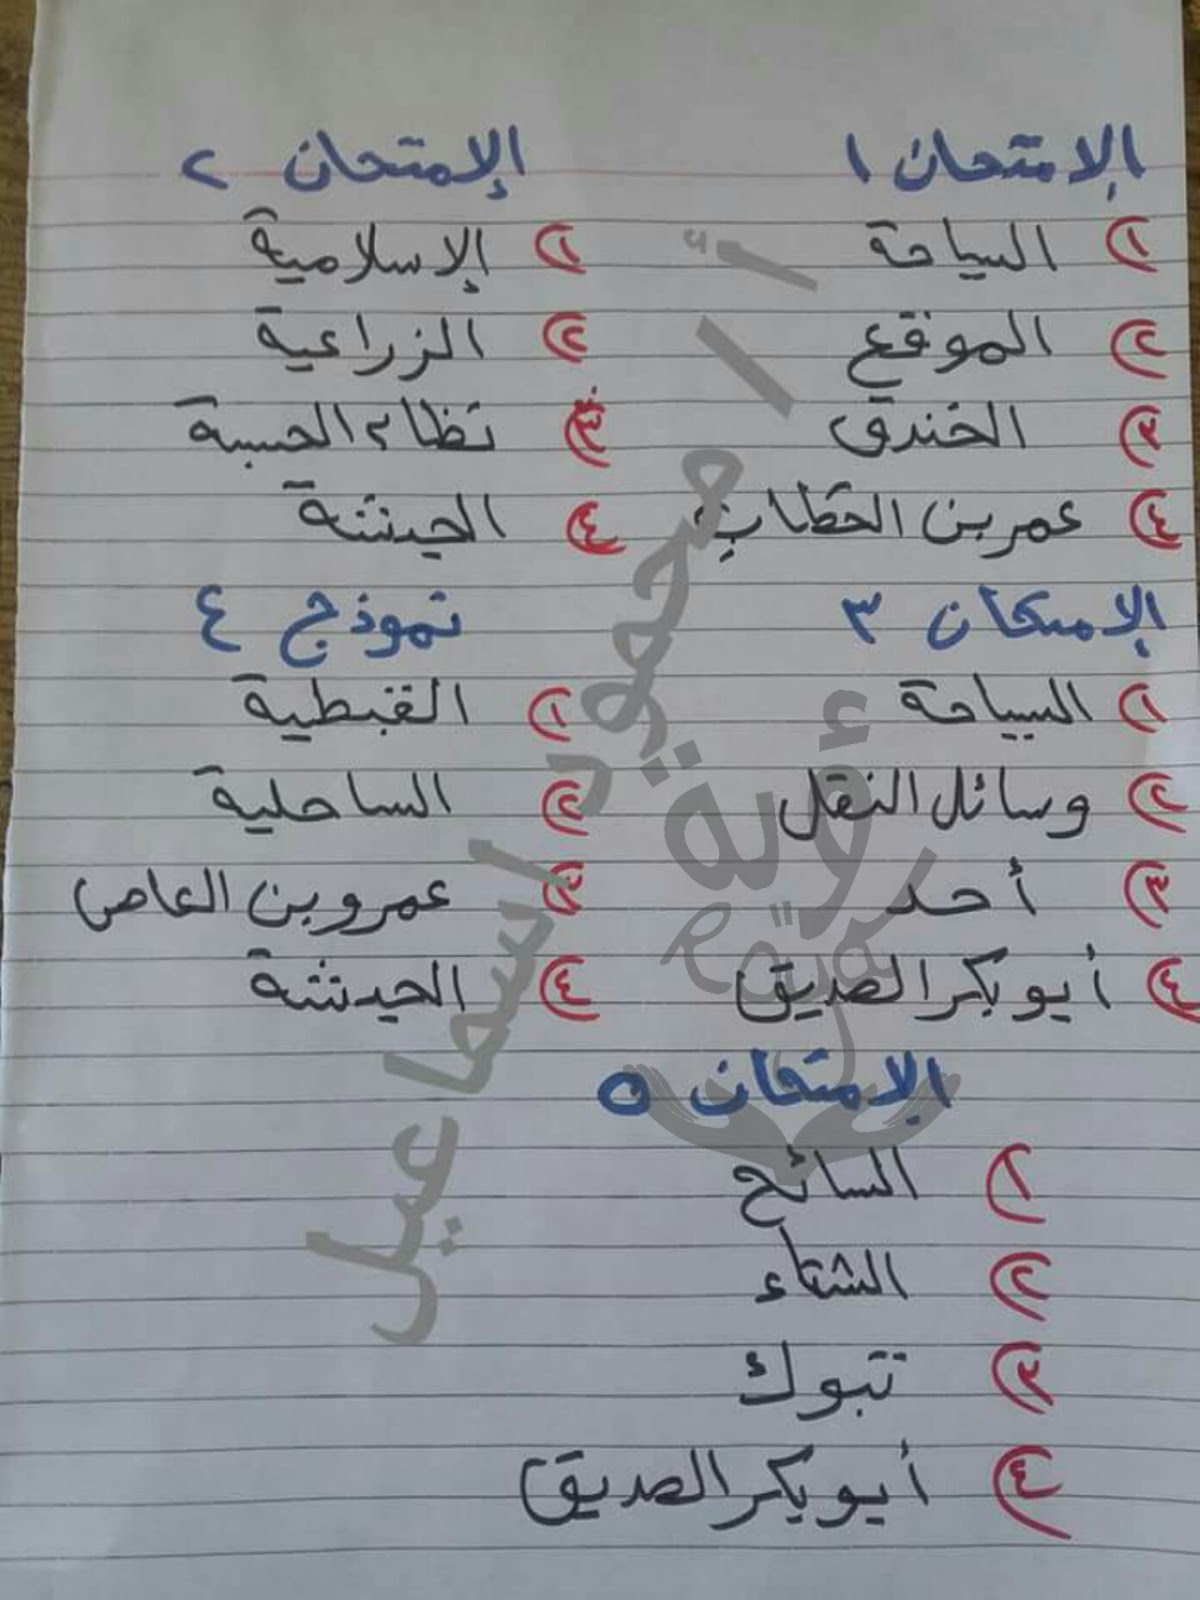 الإمتحان ١
١) السياحة
٢) الموقع
٣) الخندق
٤) عمر بن الخطاب
الإمتحان ٢
١) الإسلامية
٢) الزراعية
٣) نظام الحسبة
٤) الحبشة
الإمتحان ٣
١) السياحة
٢) وسائل النقل
٣) أحد
٤) أبو بكر الصديق
نموذج ٤
١) القبطية
٢) الساحلية
٣) عمرو بن العاص
٤) الحبشة
الإمتحان ٥
١) السائح
٢) الشتاء
٣) تبوك
٤) أبو بكر الصديق
أ / محمود اسماعيل